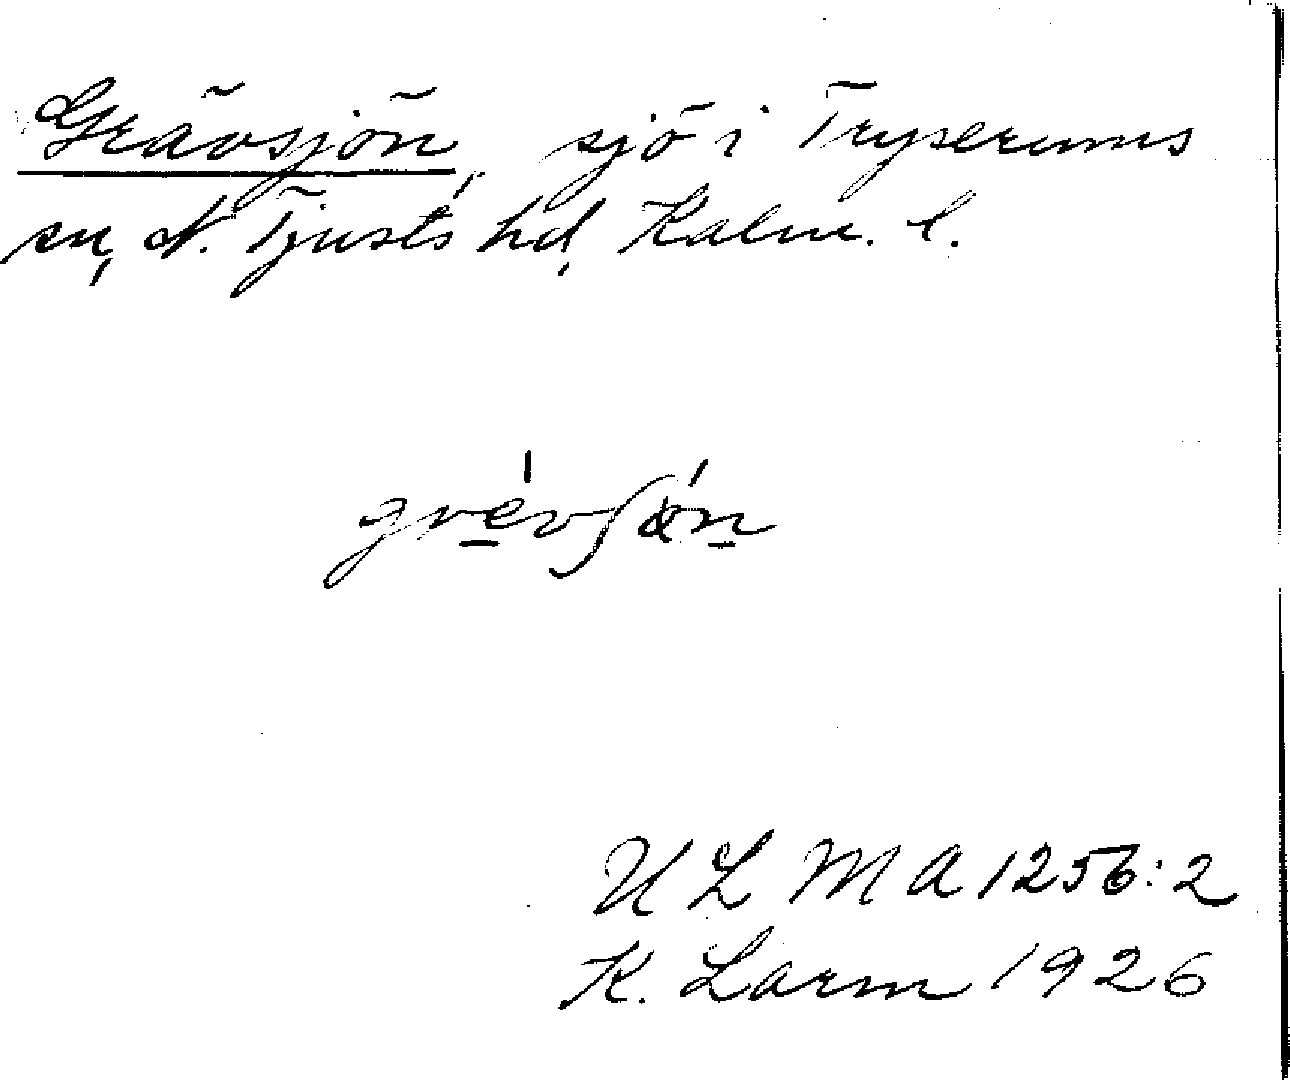 Grävsjön, sjö i Tryserums
sn, N. Tjusts hd, Kalm. l.
grèvʃǿn
ULMA 1256:2
K. Larm 1926